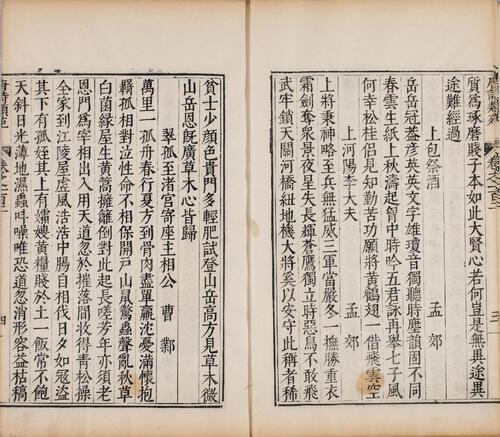 質爲琢磨賤子本如此大賢心若何豈是無異途異
途難經過
上包祭酒 孟郊
岳岳冠蓋彥英英文字雄瓊音獨聽時塵韻固不同
春雲生紙上秋濤起胷中時吟五君詠再舉七子風
何幸松桂侶見知勤苦功願將黃鶴翅一借飛雲空
上河陽李大夫 孟郊
上將秉神略至兵無猛威三軍當嚴冬一撫勝重衣
霜劍奪衆景夜星失長輝蒼鷹獨立時惡鳥不敢飛
武牢鎖天關河橋紐地機大將奚以安守此稱者稀
貧士少顏色貴門多輕肥試登山岳高方見草木微
山岳恩旣廣草木心皆歸
翠孤至渚宮寄座主相公 曹鄴
萬里一孤舟春行夏方到骨肉盡單羸沈憂滿懷抱
羇孤相對泣性命不相保開戶山鼠驚蟲聲亂秋草
白菌緣屋生黃蒿擁籬倒對此起長嗟芳年亦須老
恩門爲宰相出入用天道忽於摧落間收得靑松操
全家到江陵屋虛風浩浩中腸自相伐日夕如寇盜
其下有孤姪其上有孀嫂黃糧賤於土一飯常不飽
天斜日光薄地濕蟲叫噪唯恐道忽消形容益枯槁
四